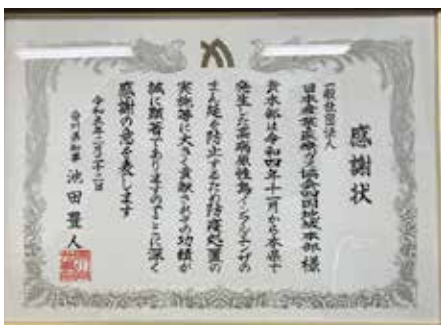 感謝状
一般社団法人
日本産業・医療ガス協会四国地域本部 様
貴本部は令和四年十一月から本県で
発生した高病原性鳥インフルエンザの
まん延を防止するため防疫処置の
実施等に大きく貢献されその功績が
誠に顕著でありますのでここに深く
感謝の意を表します
令和五年二月二十二日
香川県知事 池田豊人